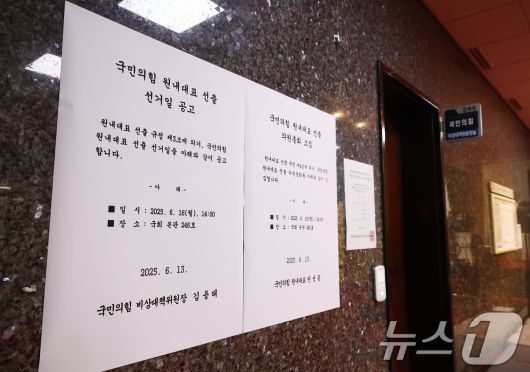 국민의힘 원내대표 선출
선거일 공고
원내대표 선출 규정 제3조에 의거, 국민의힘
원내대표 선출 선거일을 아래와 같이 공고
합니다.
- 아 래 -
■ 일 시 : 2025. 6. 16(월), 14:00
■ 장 소 : 국회 본관 246호
2025. 6. 13.
국민의힘 비상대책위원장 김 용 태
국민의힘 원내대표 선출
의원총회 소집
원내대표 선출 의원총회를 아래와 같이 소
집합니다.
- 아 래 -
■ 일 시 : 2025. 6. 16(월), 14:00
■ 장 소 : 국회 본관 246호
2025. 6. 13.
국민의힘 원내대표 권 성 동
국민의힘
비상대책위원장실
뉴스1